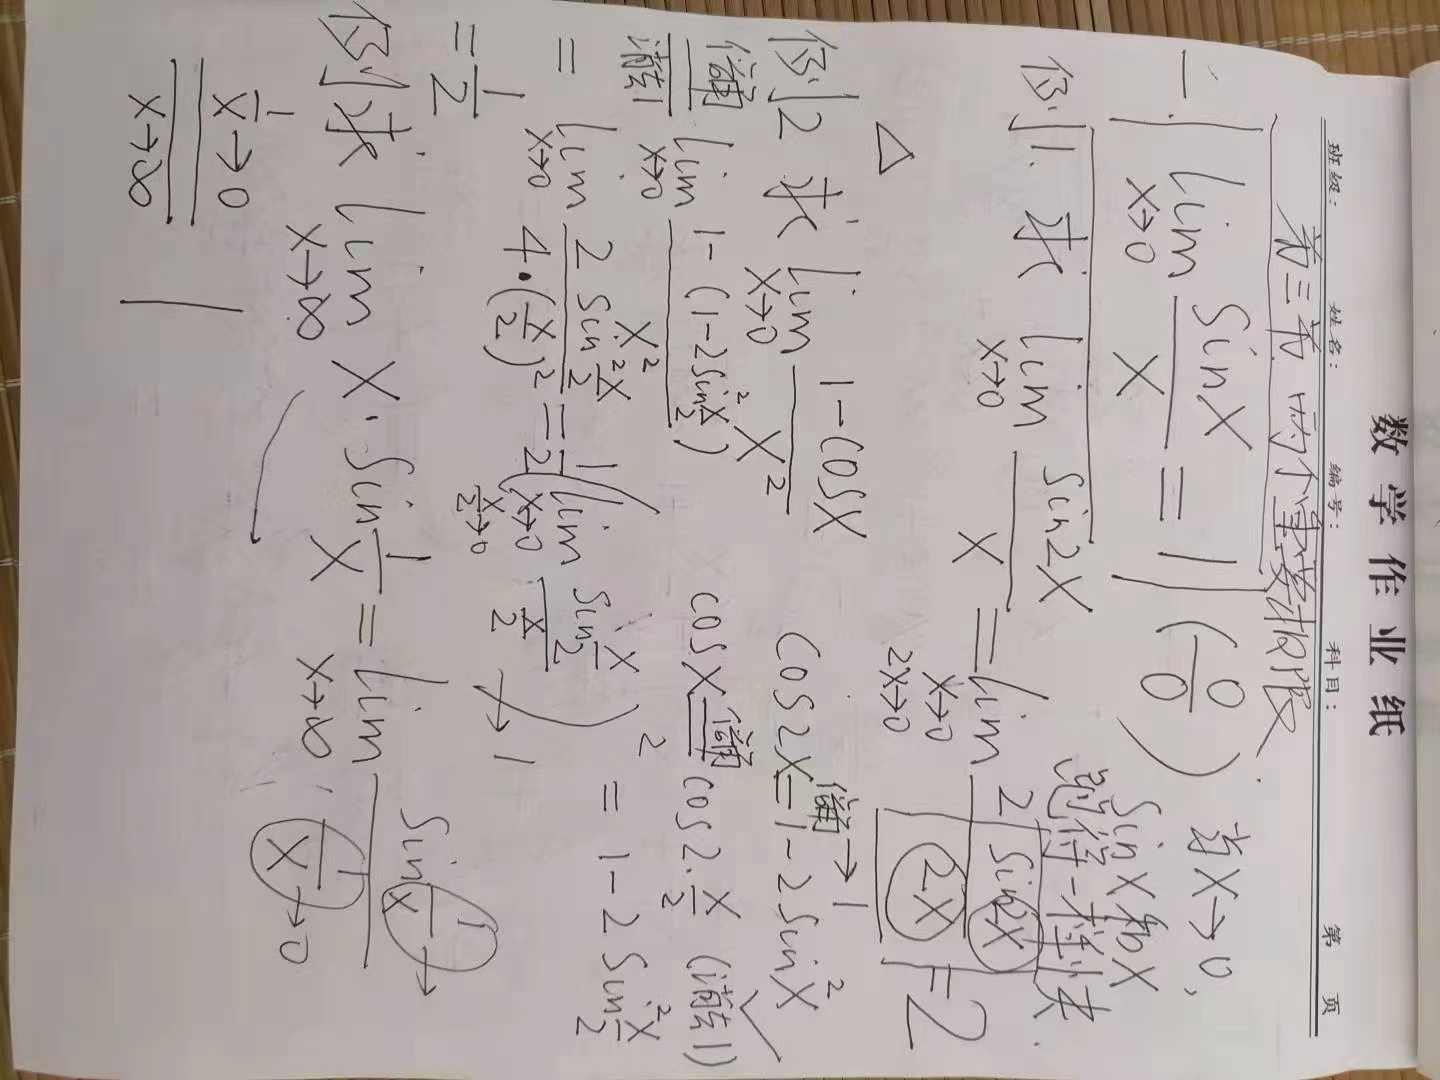 数学作业纸
班级： 姓名： 编号： 科目： 第 页
第三节 两个重要极限
一. lim x→0 sinx/x = 1 (0/0) 当x→0,
sinx和x
跑得一样快.
例1. 求 lim x→0 sin2x/x = lim x→0 2x→0 2 sin2x/2x = 2
△
例2 求 lim x→0 1-cosx/x² cos2x=1-2sin²x
倍角→1
倍角 消去1 lim x→0 1-(1-2sin²x/2)/x² cosx 倍角 cos2·x/2 (消去1)
= lim x→0 2sin²x/2/4·(x/2)² = 1/2 (lim x→0 x/2→0 sin x/2 / x/2)² = 1-2sin²x/2
→1
= 1/2
例 求 lim x→∞ x·sin1/x = lim x→∞ sin1/x→ / 1/x→0
1/x→0 x→∞ 1